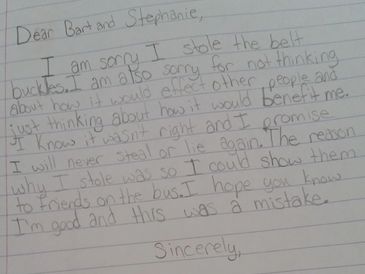 Dear Bart and Stephanie,
I am sorry I stole the belt
buckles. I am also sorry for not thinking
about how it would effect other people and
just thinking about how it would benefit me.
I know it wasn't right and I promise
I will never steal or lie again. The reason
why I stole was so I could show them
to friends on the bus. I hope you know
I'm good and this was a mistake.
Sincerely,